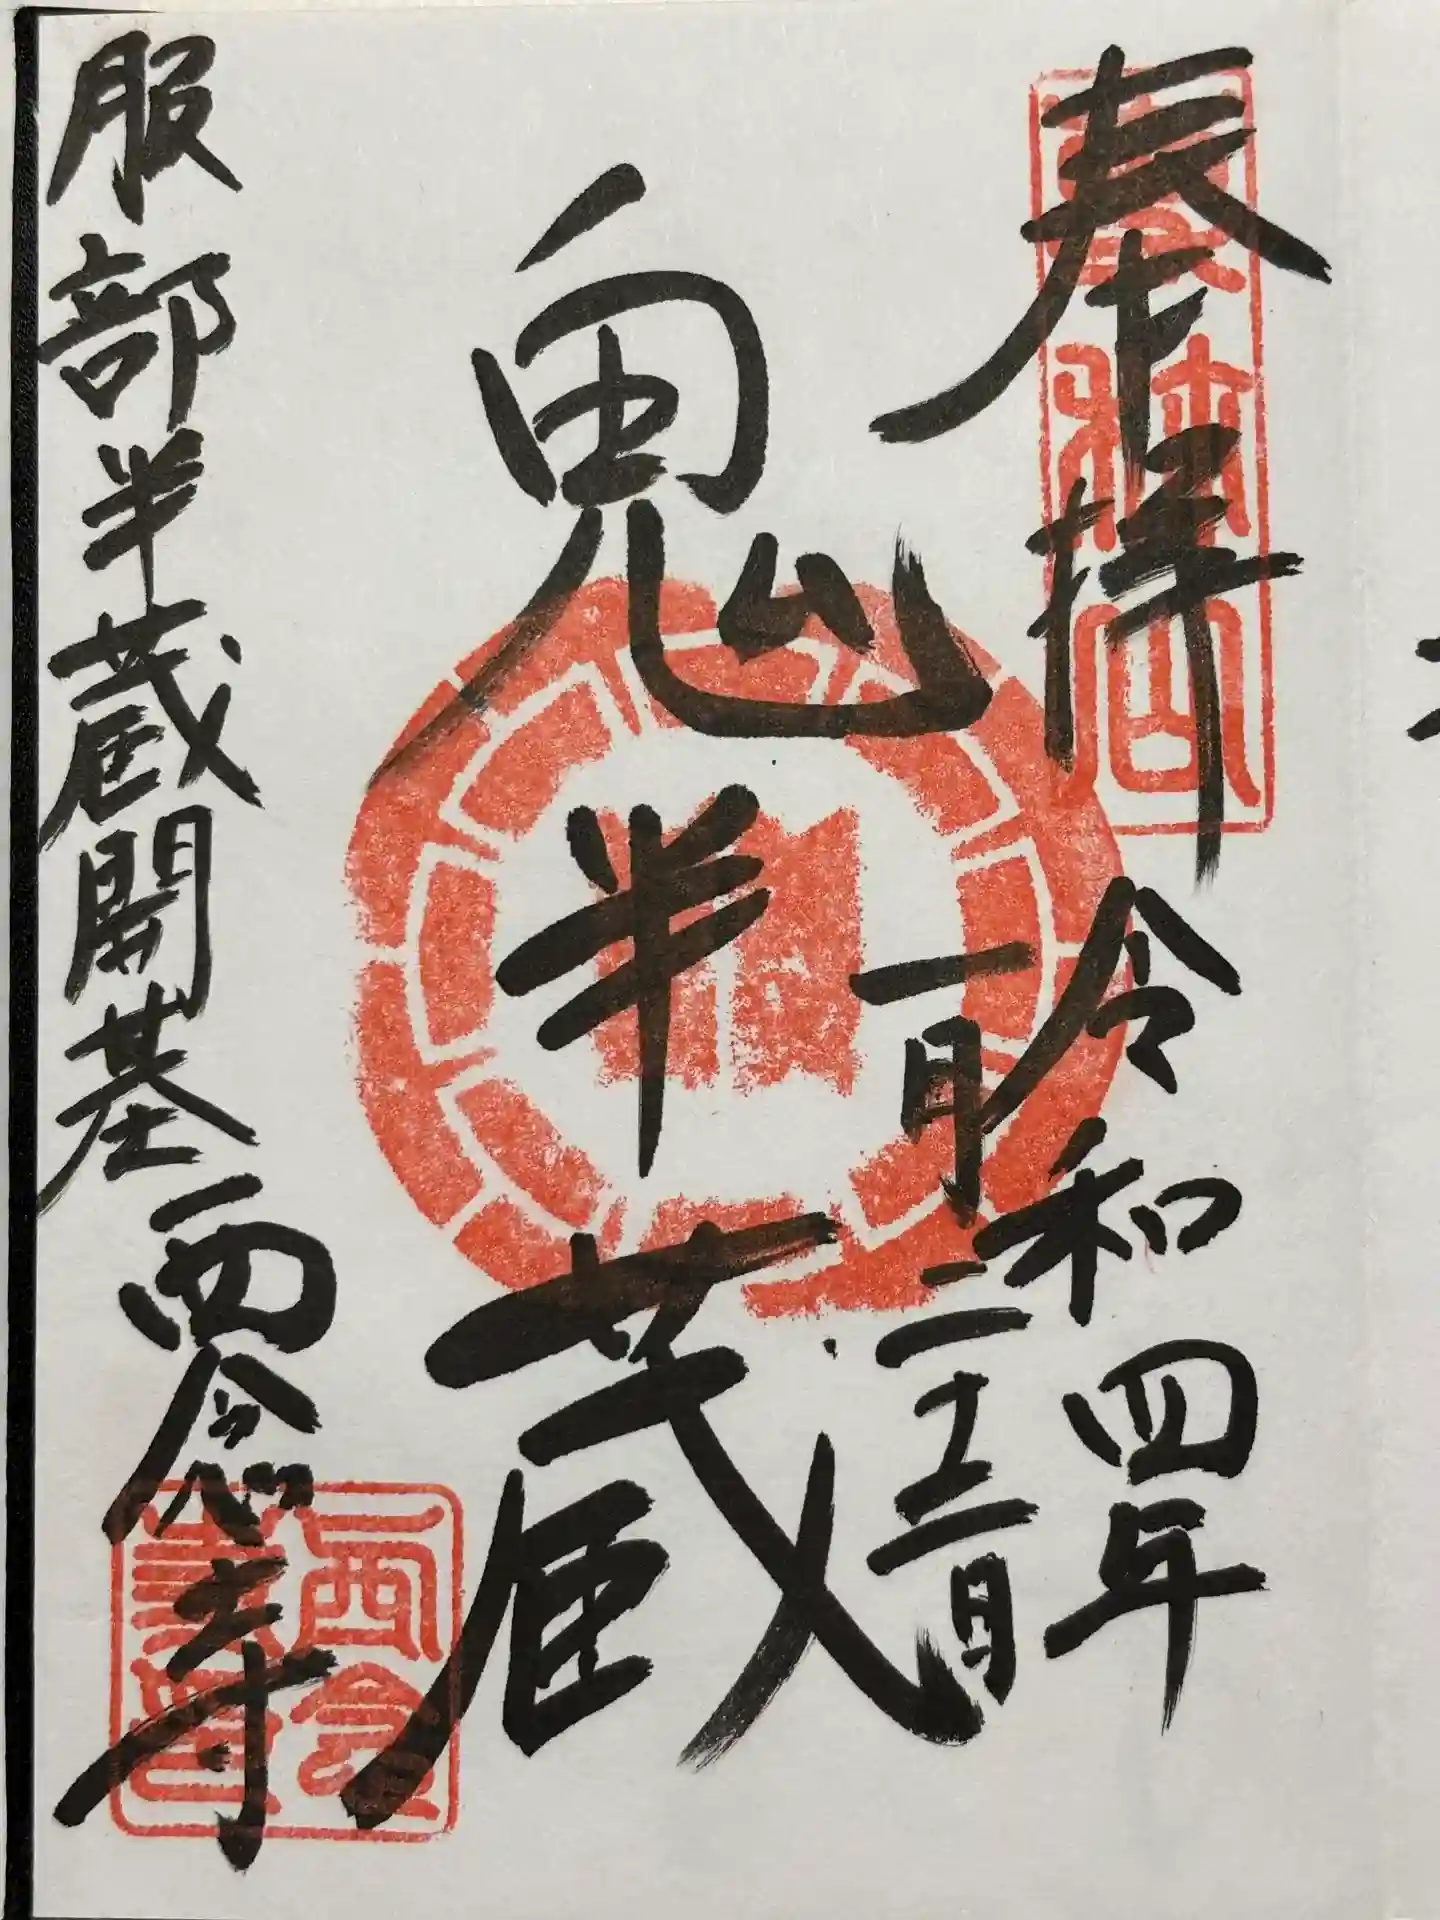 奉拝
令和四年
一月二十二日
鬼半蔵
服部半蔵開基西念寺
西念
寺印